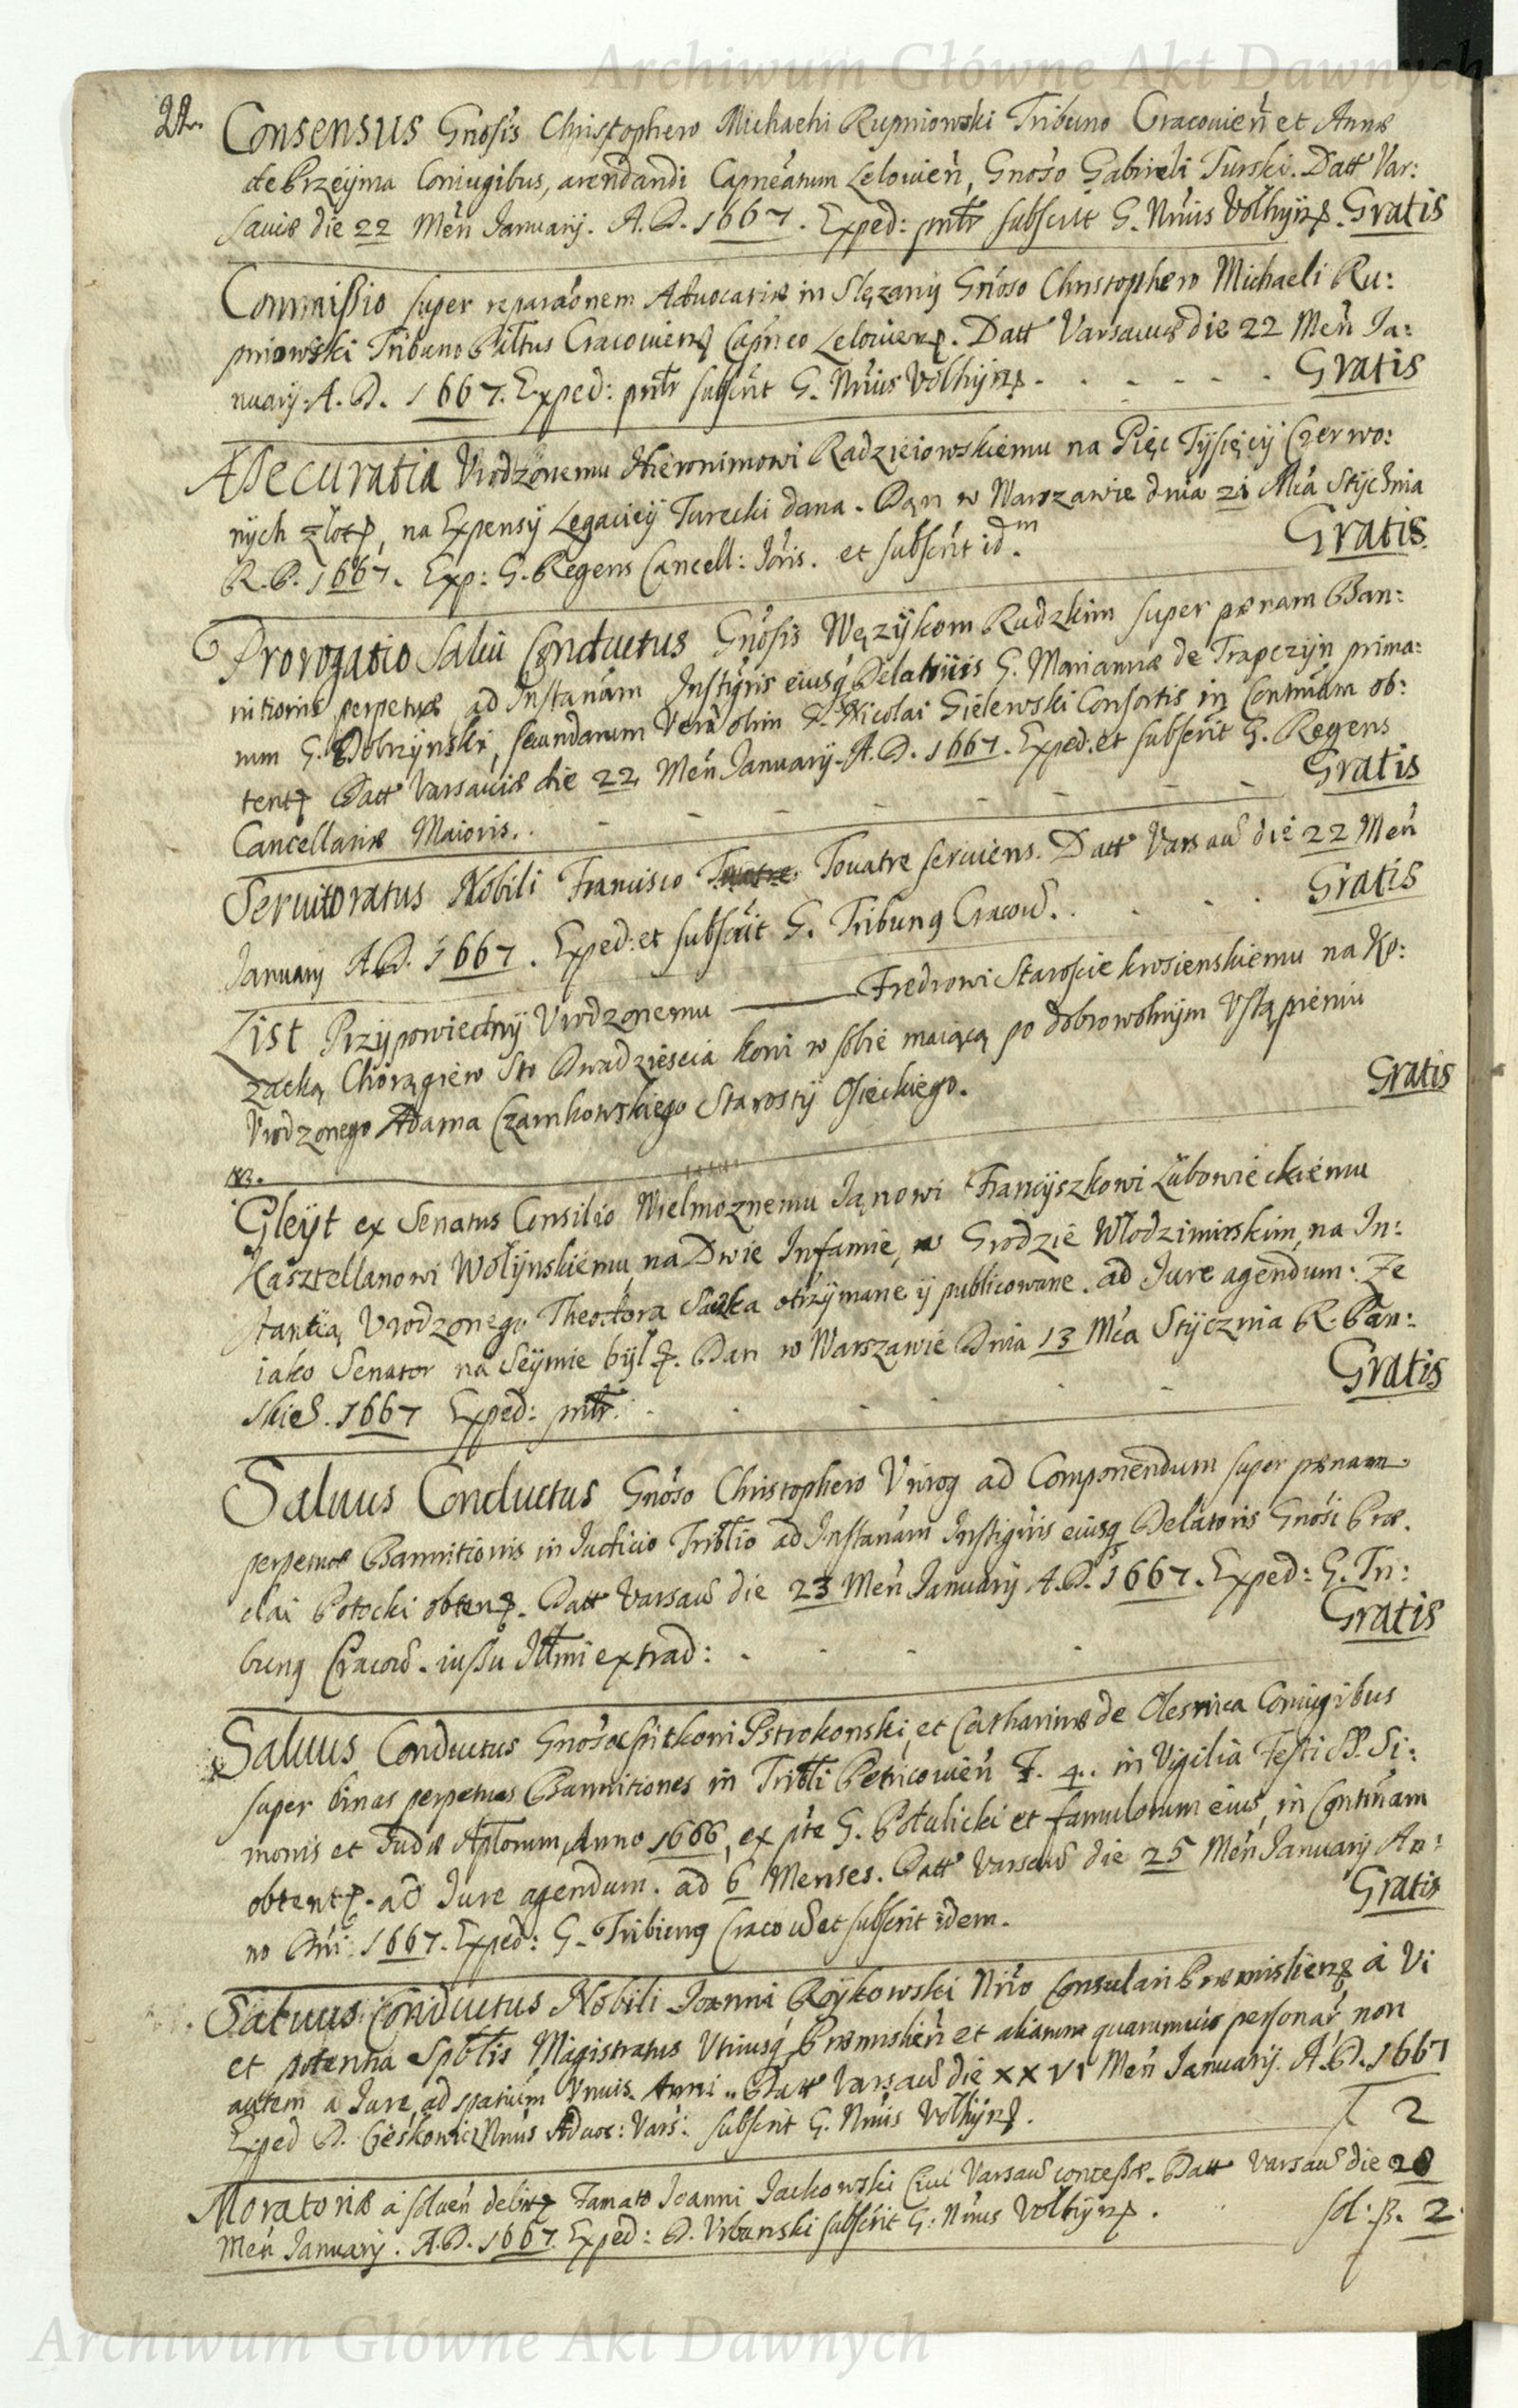 Archiwum Główne Akt Dawnych
22.
Consensus Gnosis Christophero Michaeli Rupniowski Tribuno Cracouien et Annæ
de Przeÿma Coniugibus, arendandi Capneatum Lelouien, Gnoso Gabrieli Turski. Datt Var:
sauiæ die 22 Men Januarij. A. D. 1667. Exped: pntr subscrit G. Nrius Volhÿn. Gratis
Commissio super reparaonem Aduocatiæ in Slęzanÿ Gnoso Christophero Michaeli Ru:
pniowski Tribuno Pltus Cracouien Capneo Lelouien. Datt Varsauiæ die 22 Men Ja:
nuarij. A. D. 1667. Exped: pntr subscrit G. Nrius Volhÿn. Gratis
Assecuratia Vrodzonemu Hieronimowi Radzieiowskiemu na Pięc Tÿsięcÿ Czerwo:
nÿch złot, na Expensÿ Legaciеÿ Turecki dana. Dan w Warszawie dnia 21 Mca Stÿcznia
R. P. 1667. Exp: G. Regens Cancell: Joris. et subscrit idm. Gratis
Prorogatio Salui Conductus Gnosis Węzÿkom Rudzkim super pœnam Ban:
nitionis perpetuæ ad Instanam Instigris eiusq Delatoris G. Mariannæ de Trapczÿn prima:
rum G. Dobrzÿnski, secundarum Vero olim G. Nicolai Gielewski Consortis in Contuiam ob:
tent Datt Varsauiæ die 22 Men Januarij. A. D. 1667. Exped. et subscrit G. Regens
Cancellariæ Maioris. Gratis
Seruitoratus Nobili Francisco Touatre seruiens. Datt Varsau die 22 Men
Januarij A. D. 1667. Exped: et subscrit G. Tribunq Cracou. Gratis
List Przÿpowiednÿ Vrodzonemu Fredrowi Staroscie krosienskiemu na Ko:
zacką Chorągiew Sto Dwadziescia koni w sobie maiącą po dobrowolnÿm Vstąpieniu
Vrodzonego Adama Czarnkowskiego Starostÿ Osieckiego. Gratis
Gleÿt ex Senatus Consilio Wielmoznemu Janowi Franciszkowi Lubowieckiemu
Kasztellanowi Wołÿnskiemu, na Dwie Infamie, w Grodzie Włodzimirskim, na In:
stantią Vrodzonego Theodora Saska otrzÿmane ÿ publicowane. ad Jure agendum: Ze
iako Senator na Seÿmie bÿł. Dan w Warszawie Dnia 13 Mca Stÿcznia R. Pan:
skie. 1667 Exped: pntr. Gratis
Saluus Conductus Gnoso Christophero Vnrog ad Componendum super pœnam
perpetuæ Bannitionis in Judicio Triblio ad Instanam Instigris eiusq Delatoris Gnosi Præ.
clai Potocki obten. Datt Varsau die 23 Men Januarij A. D. 1667. Exped: G. Tri:
bunq Cracou. iussu Illmi extrad: Gratis
Saluus Conductus Gnosæ Spitkoni Pstrokonski, et Catharinæ de Olesnica Coniugibus
super binas perpetuas Bannitiones in Tribli Petricouien F. 4. in Vigilia Festi SS. Si:
monis et Judæ Aplorum, Anno 1666, ex pte G. Potulicki et famulorum eius, in Contuiam
obtent. ad Jure agendum. ad 6 Menses. Datt Varsau die 25 Men Januarij An:
no Dni. 1667. Exped: G. Tribunq Cracou et subscrit idem. Gratis
Saluus Conductus Nobili Joanni Roÿkowski Nrio Consulari Præmislien à Vi
et potentia Spblis Magistratus Vtriusq Præmislien et aliarum quarumuis personar non
autem a Jure, ad spatium Vnius Anni. Datt Varsau die XXVI Men Januarij. A. D. 1667
Exped D. Cieskowic Nrius Aduoc: Vars: subscrit G. Nrius Volhÿn. 2
Moratoriæ à soluen debit Famato Joanni Jackowski Ciui Varsau concessæ. Datt Varsau die 28
Men Januarij. A. D. 1667 Exped: D. Vrbanski subscrit G. Nrius Volhÿn. sol: fl. 2
Archiwum Główne Akt Dawnych